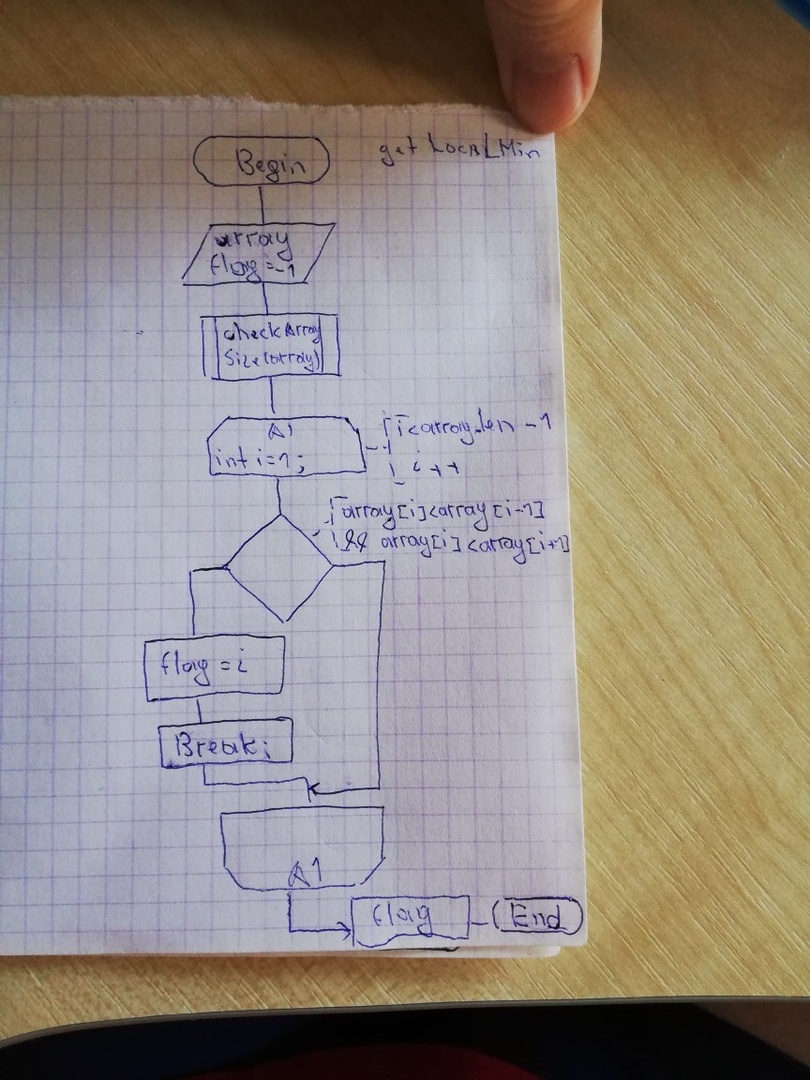 get LocalMin
Begin
array
flag = -1
checkArray
Size(array)
A1
int i=1;
i<array.len -1
i++
array[i]<array[i-1]
&& array[i]<array[i+1]
flag = i
Break;
A1
flag
End